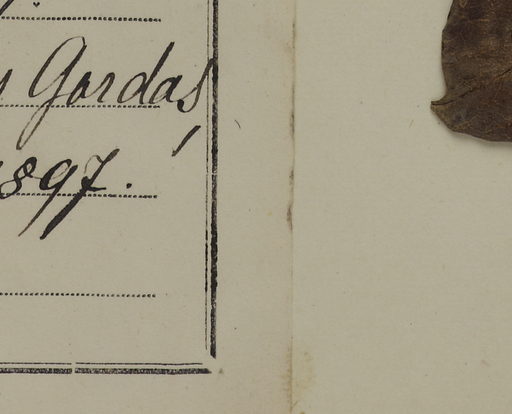 Gordas,
1897.